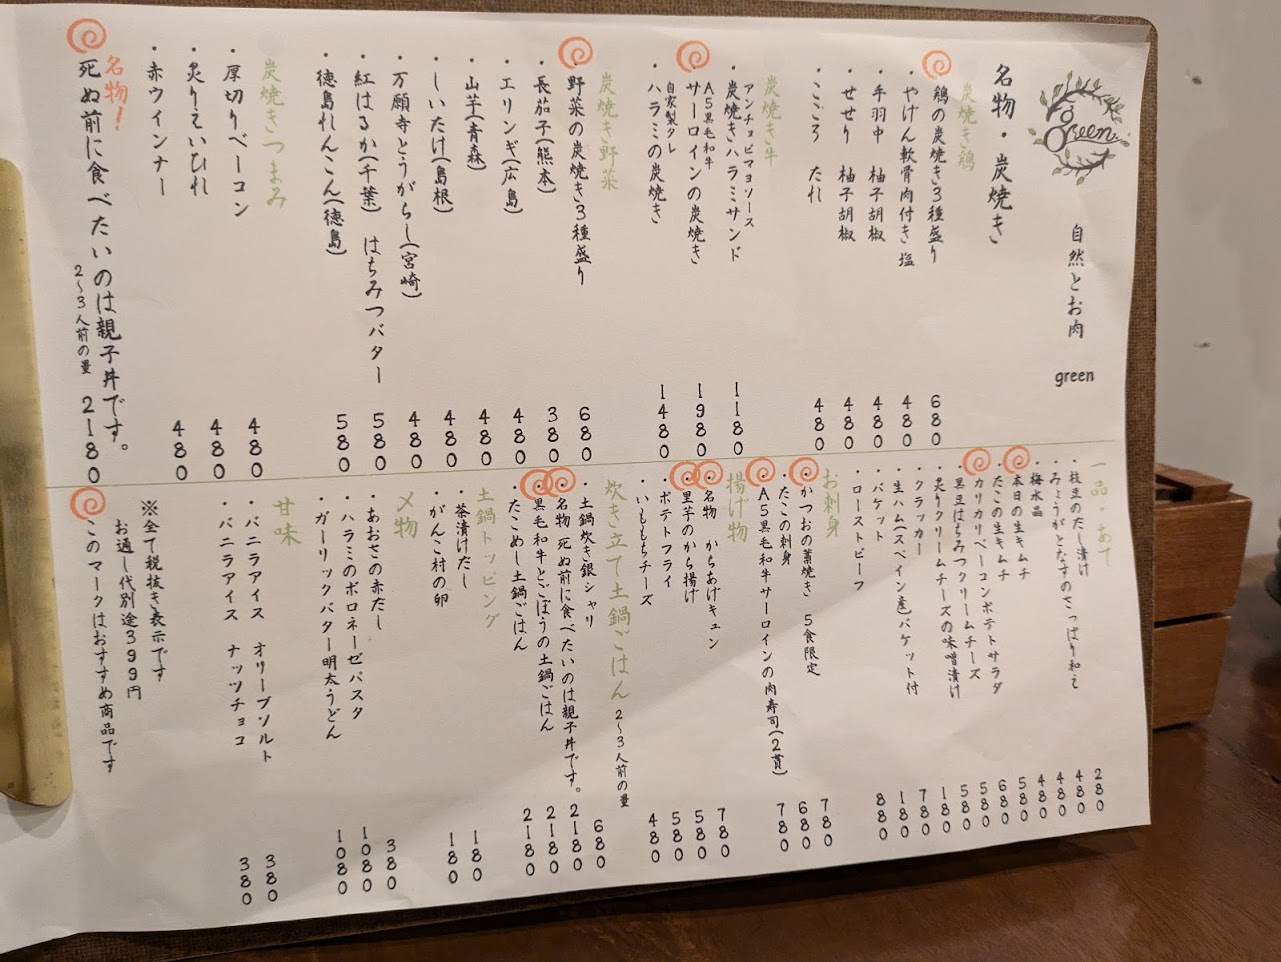 green
自然とお肉 green
名物・炭焼き
炭焼き鶏
・鶏の炭焼き3種盛り 680
・やげん軟骨肉付き 塩 480
・手羽中 柚子胡椒 480
・せせり 柚子胡椒 480
・こころ たれ 480
炭焼き牛
アンチョビマヨソース
・炭焼きハラミサンド 1180
A5黒毛和牛
・サーロインの炭焼き 1980
自家製タレ
・ハラミの炭焼き 1480
炭焼き野菜
・野菜の炭焼き3種盛り 680
・長茄子(熊本) 380
・エリンギ(広島) 480
・山芋(青森) 480
・しいたけ(島根) 480
・万願寺とうがらし(宮崎) 480
・紅はるか(千葉) はちみつバター 580
・徳島れんこん(徳島) 580
炭焼きつまみ
・厚切りベーコン 480
・炙りえいひれ 480
・赤ウインナー 480
名物!
死ぬ前に食べたいのは親子丼です。
2〜3人前の量 2180
一品・あて
・枝豆のだし漬け 280
・みょうがとなすのさっぱり和え 480
・梅水晶 480
・本日の生キムチ 480
・たこの生キムチ 580
・カリカリベーコンポテトサラダ 680
・黒豆はちみつクリームチーズ 580
・炙りクリームチーズの味噌漬け 580
・クラッカー 180
・生ハム(スペイン産)バケット付 780
・バケット 180
・ローストビーフ 880
お刺身
・かつおの藁焼き 5食限定 780
・たこの刺身 680
・A5黒毛和牛サーロインの肉寿司(2貫) 780
揚げ物
・名物 からあげキュン 780
・里芋のから揚げ 580
・ポテトフライ 580
・いももちチーズ 480
炊き立て土鍋ごはん 2〜3人前の量
・土鍋炊き銀シャリ 680
・名物 死ぬ前に食べたいのは親子丼です。 2180
・黒毛和牛とごぼうの土鍋ごはん 2180
・たこめし土鍋ごはん 2180
土鍋トッピング
・茶漬けだし 180
・がんこ村の卵 180
〆物
・あおさの赤だし 380
・ハラミのボロネーゼパスタ 1080
・ガーリックバター明太うどん 1080
甘味
・バニラアイス オリーブソルト 380
・バニラアイス ナッツチョコ 380
※全て税抜き表示です
お通し代別途399円
このマークはおすすめ商品です